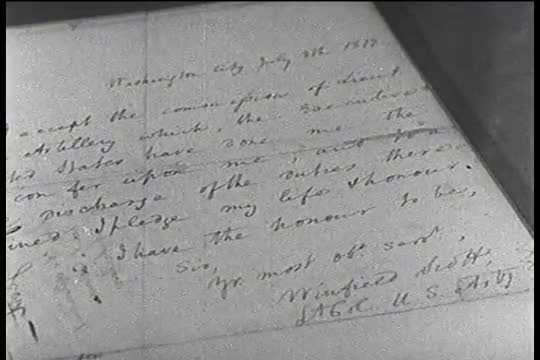 Washington City July 8th 1812
accept the commission of Lieut
Artillery which, the Executive
ted States have done me the
confer upon me; and
Discharge of the duties there
ined. I pledge my life & honour.
I have the honour to be,
Sir,
Yr. most obt. servt,
Winfield Scott,
U S Arty